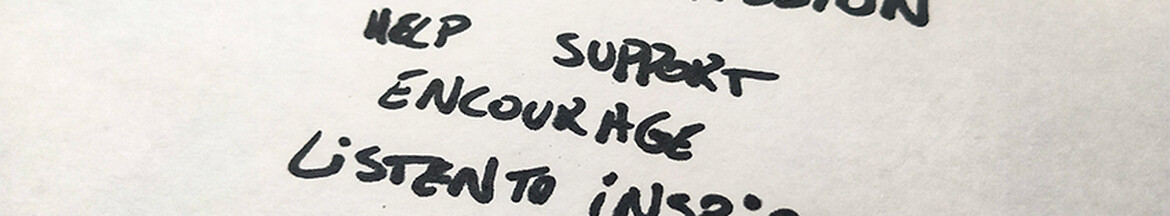 HELP SUPPORT
ENCOURAGE
LiSTEN TO